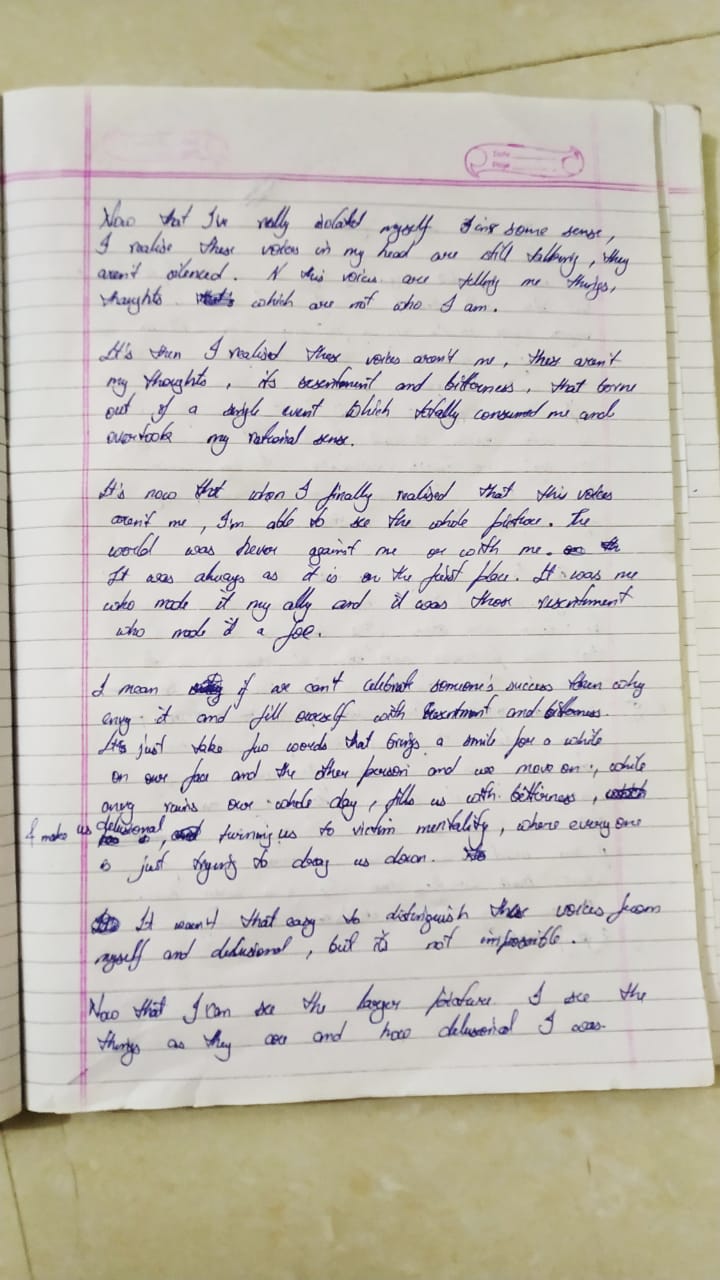 Date
Page
Now that I've really isolated myself in some sense,
I realise these voices in my head are still talking, they
aren't silenced. N this voices are telling me things,
thoughts which are not who I am.
It's then I realised these voices aren't me, these aren't
my thoughts, its resentment and bitterness, that borne
out of a single event which totally consumed me and
overtook my rational sense.
It's now that when I finally realised that this voices
aren't me, I'm able to see the whole picture. The
world was never against me or with me.
It was always as it is on the first place. It was me
who made it my ally and it was those resentment
who made it a foe.
I mean if we can't celebrate someone's success then why
envy it and fill ourself with resentment and bitterness.
It's just take few words that brings a smile for a while
on our face and the other person and we move on, while
envy ruins our whole day, fills us with bitterness,
& make us delusional, turning us to victim mentality, where every one
is just trying to drag us down.
It wasn't that easy to distinguish these voices from
myself and delusional, but its not impossible.
Now that I can see the larger picture I see the
things as they are and how delusional I was.